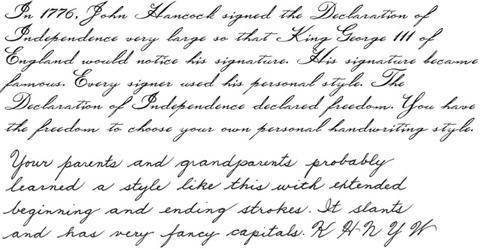 In 1776, John Hancock signed the Declaration of
Independence very large so that King George III of
England would notice his signature. His signature became
famous. Every signer used his personal style. The
Declaration of Independence declared freedom. You have
the freedom to choose your own personal handwriting style.
Your parents and grandparents probably
learned a style like this with extended
beginning and ending strokes. It slants
and has very fancy capitals. K H N Y W